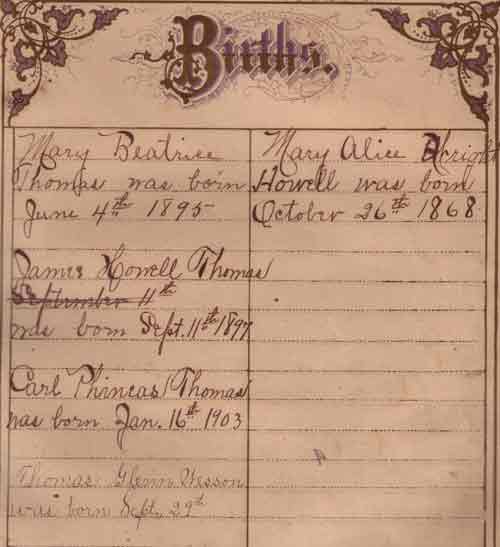 Births.
Mary Beatrice
Thomas was born
June 4th 1895
James Howell Thomas
September 11th
was born Sept. 11th 1897
Carl Phineas Thomas
was born Jan. 16th 1903
Thomas Glenn Wesson
was born Sept. 29th
Mary Alice Wright
Howell was born
October 26th 1868